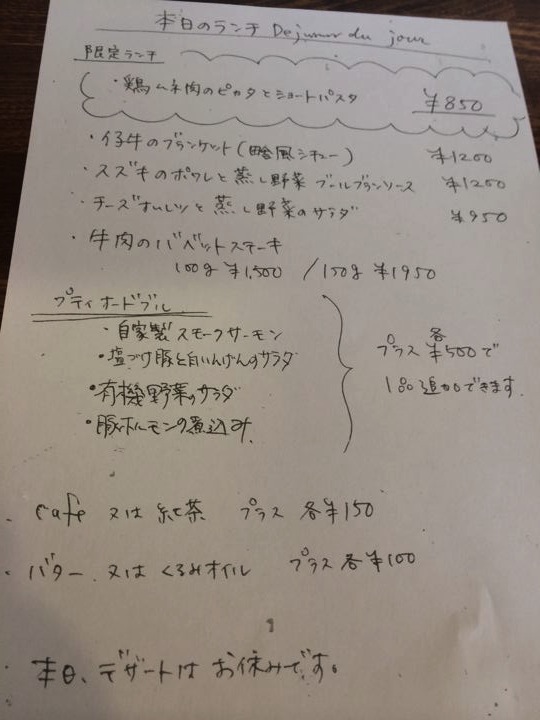 本日のランチ Dejunar du jour
限定ランチ
・鶏ムネ肉のピカタとショートパスタ ¥850
・仔牛のブランケット(田舎風シチュー) ¥1200
・スズキのポワレと蒸し野菜 ブールブランソース ¥1200
・チーズオムレツと蒸し野菜のサラダ ¥950
・牛肉のバベットステーキ
100g ¥1,500 / 150g ¥1950
プティオードブル
・自家製スモークサーモン
・塩づけ豚と白いんげんのサラダ
・有機野菜のサラダ
・豚ホルモンの煮込み
プラス 各¥500で
1品追加できます.
・Cafe 又は 紅茶 プラス 各¥150
・バター 又は くるみオイル プラス 各¥100
・本日、デザートは お休みです。